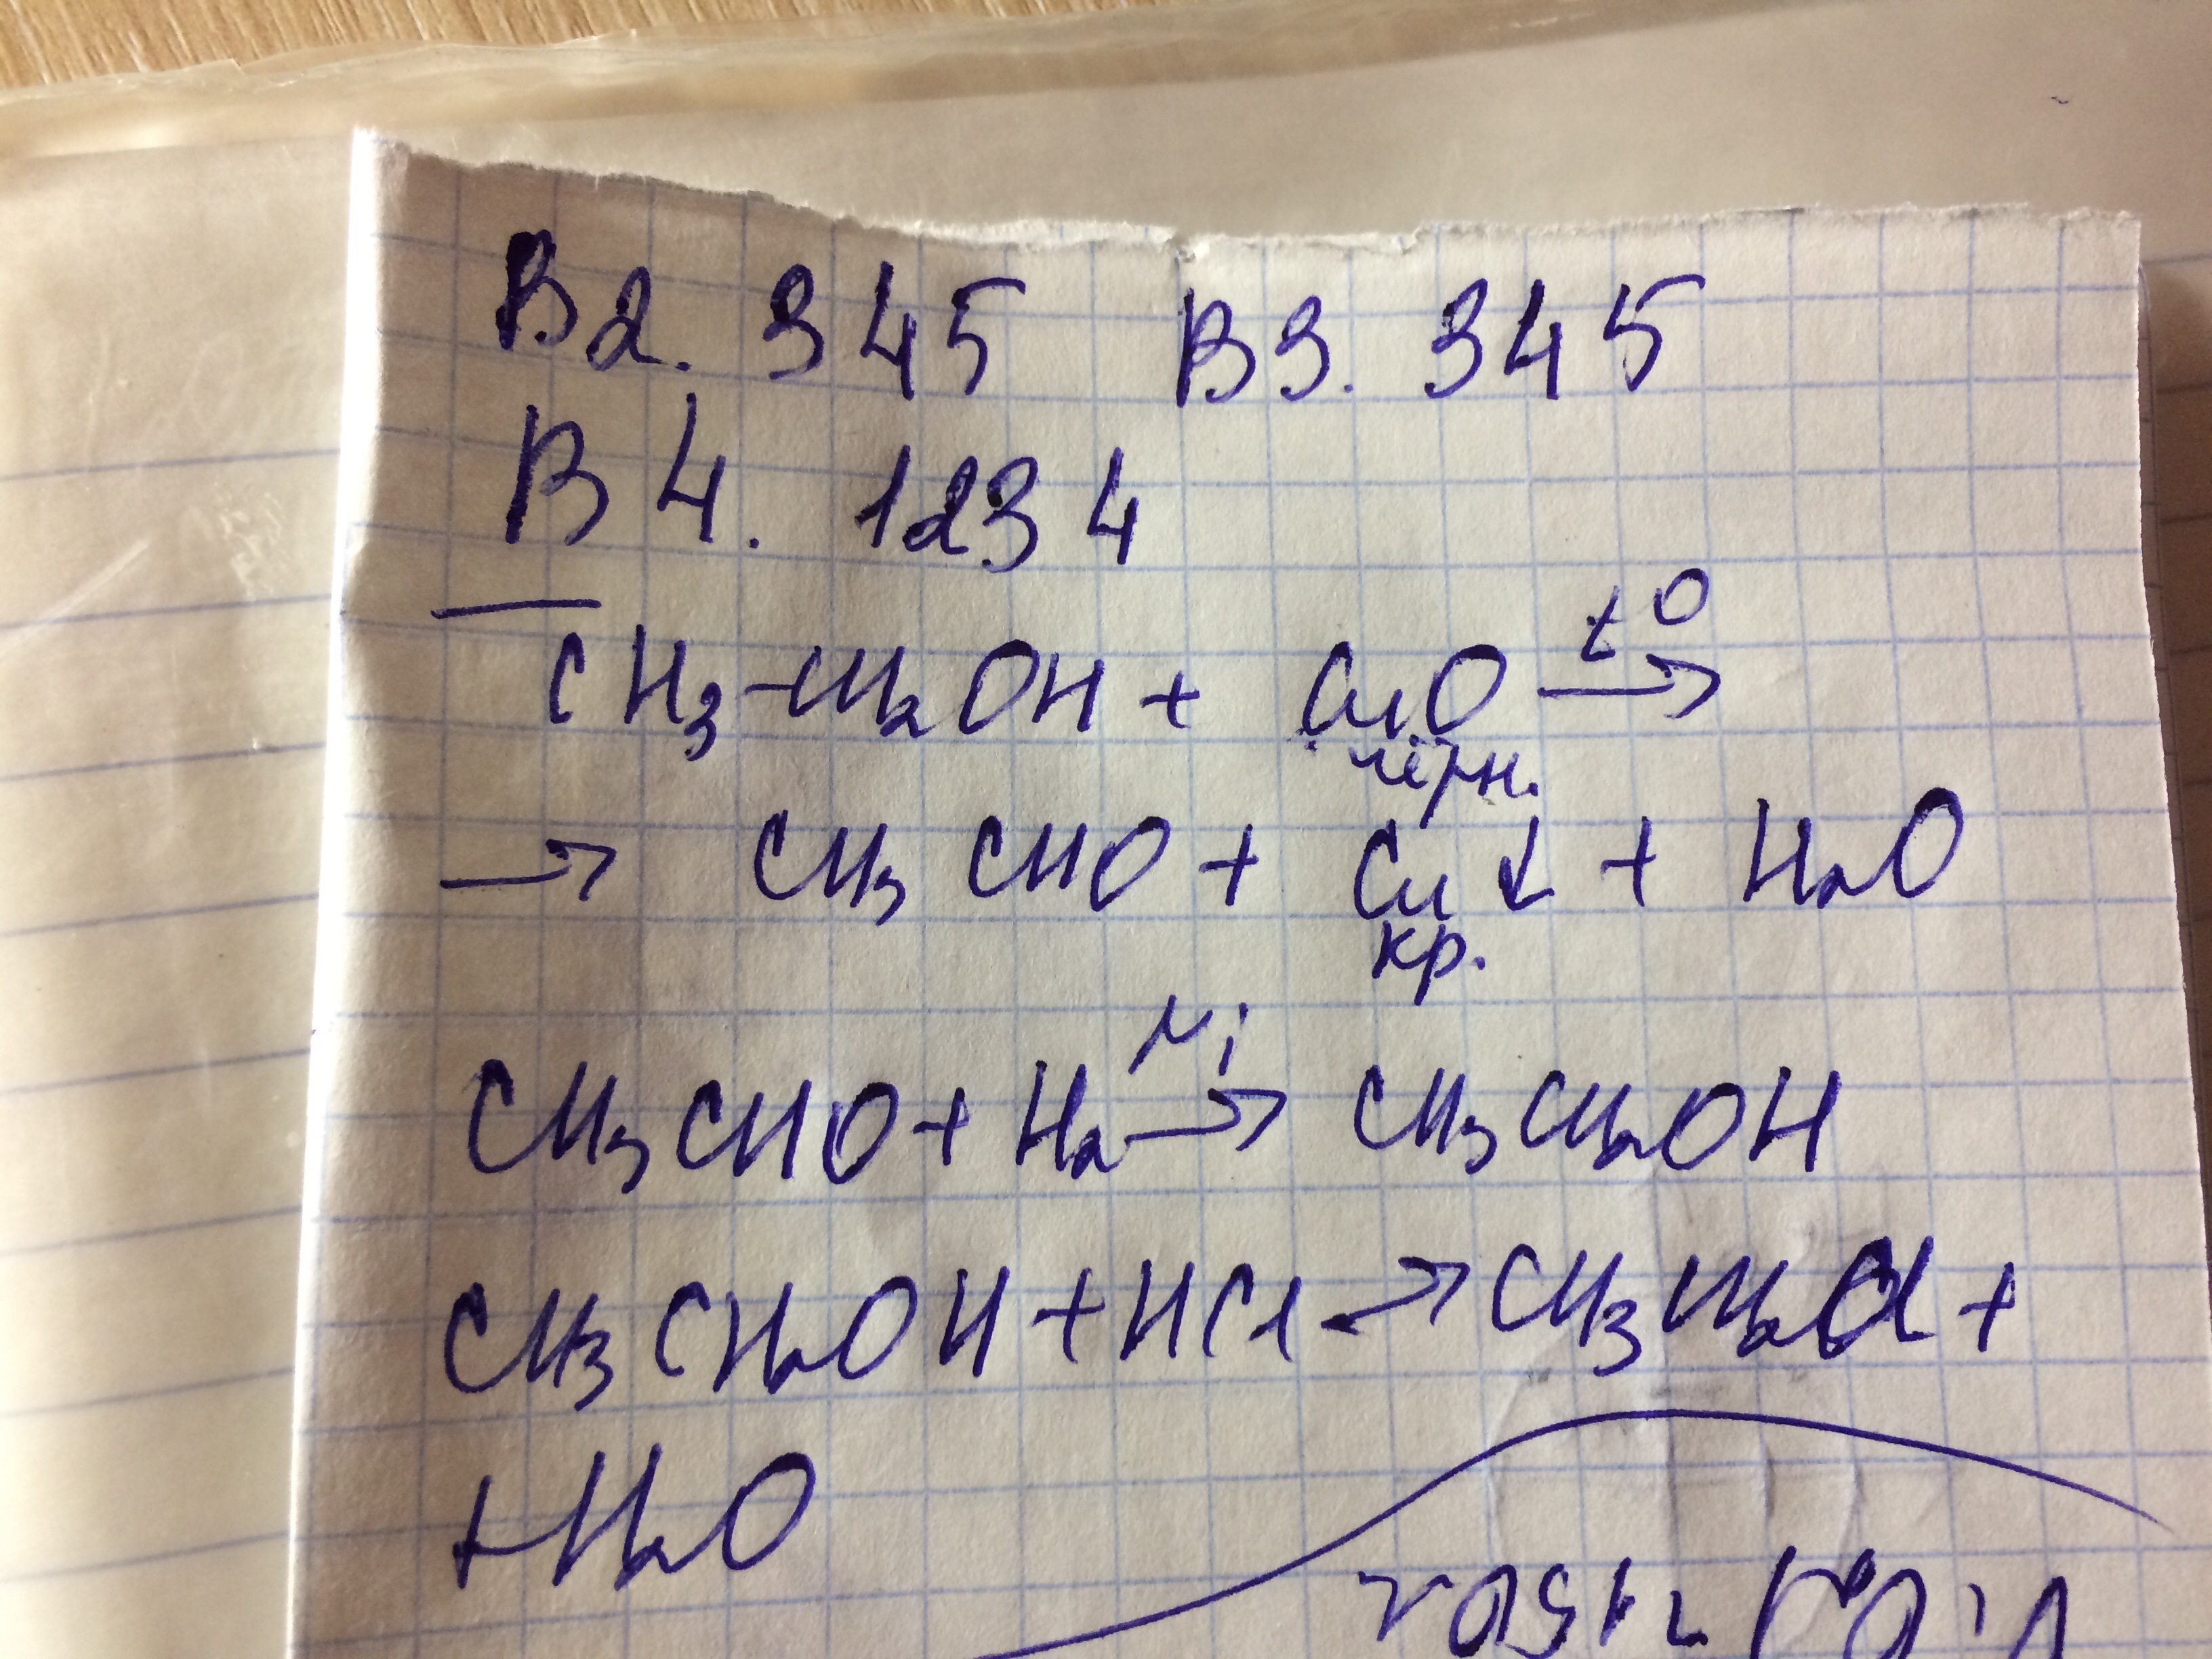 В2. 345 В3. 345
В4. 1234
CH3-CH2OH + CuO t°→
черн.
→ CH3CHO + Cu↓ + H2O
кр.
Ni
CH3CHO + H2 → CH3CH2OH
CH3CH2OH + HCl → CH3CH2Cl +
+ H2O